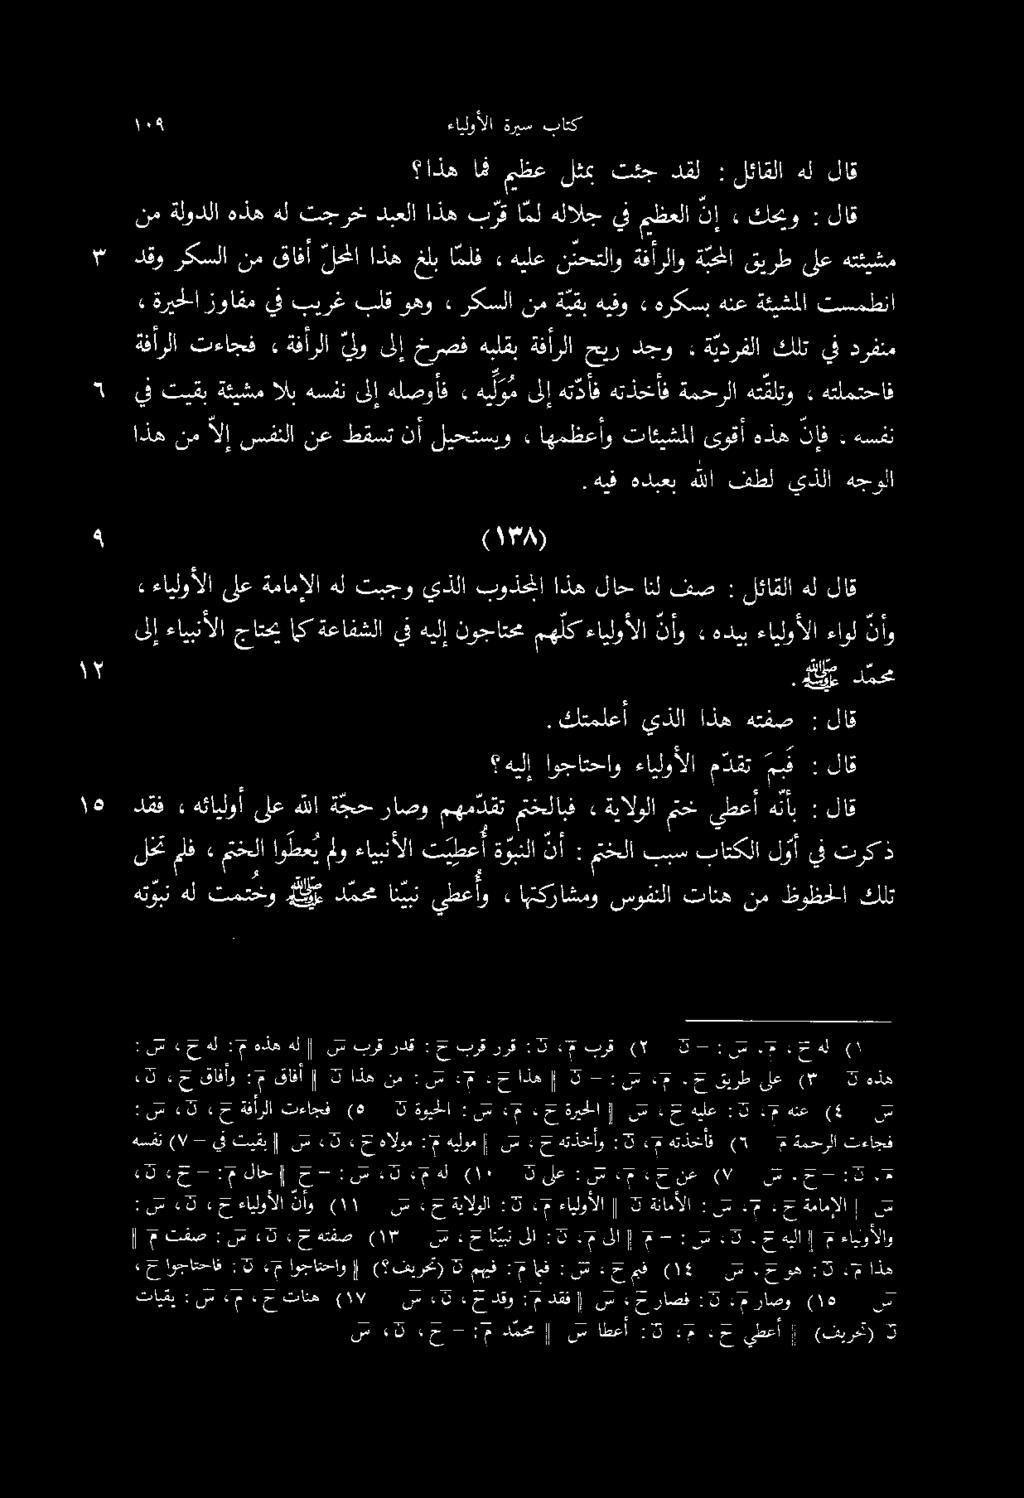 كتاب سيرة الأولياء ١٠٩
قال له القائل : لقد جئت بمثل عظيم فما هذا؟
قال : ويحك ، إنّ العظيم في جلاله لمّا قرّب هذا العبد خرجت له هذه الدولة من
مشيئته على طريق المحبّة والرأفة والتحنّن عليه ، فلمّا بلغ هذا المحلّ أفاق من السكر وقد ٣
انطمست المشيئة عنه بسكره ، وفيه بقيّة من السكر ، وهو قلب غريب في مفاوز الحيرة ،
منفرد في تلك الفرديّة ، وجد ريح الرأفة بقلبه فصرخ إلى وليّ الرأفة ، فجاءت الرأفة
فاحتملته ، وتلقّته الرحمة فأخذته فأدّته إلى مُوَلِّيه ، فأوصله إلى نفسه بلا مشيئة بقيت في ٦
نفسه . فإنّ هذه أقوى المشيئات وأعظمها ، ويستحيل أن تسقط عن النفس إلّا من هذا
الوجه الذي لطف الله بعبده فيه .
(١٣٨) ٩
قال له القائل : صف لنا حال هذا المجذوب الذي وجبت له الإمامة على الأولياء ،
وأنّ لواء الأولياء بيده ، وأنّ الأولياء كلّهم محتاجون إليه في الشفاعة كما يحتاج الأنبياء إلى
محمّد ﷺ . ١٢
قال : صفته هذا الذي أعلمتك .
قال : فَبِمَ تقدّم الأولياء واحتاجوا إليه؟
قال : بأنّه أعطي ختم الولاية ، فبالختم تقدّمهم وصار حجّة الله على أوليائه ، فقد ١٥
ذكرت في أوّل الكتاب سبب الختم : أنّ النبوّة أُعطِيَت الأنبياء ولم يُعطَوا الختم ، فلم تخل
تلك الحظوظ من هنات النفوس ومشاركتها ، وأُعطي نبيّنا محمّد ﷺ وخُتمت له نبوّته
١) له ح ، م ، س : – ن ٢) قرب م ، ن : قرر قرب ح : قدر قرب س ‖ له هذه م : له ح ، س :
هذه ن ٣) على طريق ح ، م ، س : – ن ‖ هذا ح ، م ، س : من هذا ن ‖ أفاق م : وأفاق ح ، ن ،
س ٤) عنه م ، ن : عليه ح ، س ‖ الحيرة ح ، م ، س : الحيوة ن ٥) فجاءت الرأفة ح ، ن ، س :
فجاءت الرحمة م ٦) فأخذته م ، ن : وأخذته ح ، س ‖ موليه م : مولاه ح ، ن ، س ‖ بقيت في – ٧) نفسه
م ، ن : – ح ، س ٧) عن ح ، م ، س : على ن ١٠) له م ، ن ، س : – ح ‖ حال م : – ح ، ن ،
س ‖ الإمامة ح ، م ، س : الأمانة ن ‖ الأولياء م ، ن : الولاية ح ، س ١١) وأنّ الأولياء ح ، ن ، س :
والأولياء م ‖ إليه ح ، ن ، س : – م ‖ إلى م ، ن : إلى نبيّنا ح ، س ١٣) صفته ح ، ن ، س : صفت م ‖
هذا م ، ن : هو ح ، س ١٤) فبم ح ، س : فما م : فيهم ن (تحريف؟) ‖ واحتاجوا م ، ن : فاحتاجوا ح ،
س ١٥) وصار م ، ن : فصار ح ، س ‖ فقد م : وقد ح ، ن ، س ١٧) هنات ح ، م ، س : بقيات
ن (تحريف) ‖ أعطي ح ، م ، ن : أعطا س ‖ محمّد م : – ح ، ن ، س